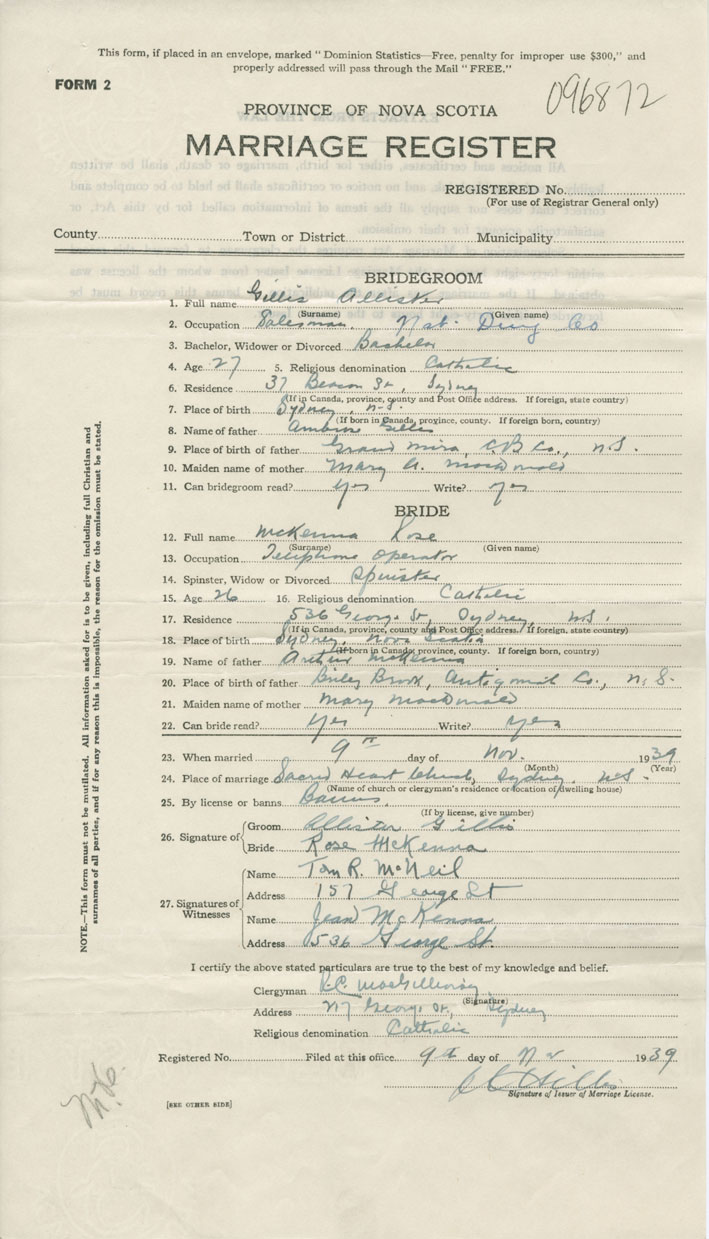 This form, if placed in an envelope, marked "Dominion Statistics—Free, penalty for improper use $300," and
properly addressed will pass through the Mail "FREE."
FORM 2
096872
PROVINCE OF NOVA SCOTIA
MARRIAGE REGISTER
REGISTERED No.
(For use of Registrar General only)
County Town or District Municipality
BRIDEGROOM
1. Full name Gillis Allister
(Surname) (Given name)
2. Occupation Salesman. Nat. Drug Co
3. Bachelor, Widower or Divorced Bachelor
4. Age 27 5. Religious denomination Catholic
6. Residence 37 Beacon St, Sydney
(If in Canada, province, county and Post Office address. If foreign, state country)
7. Place of birth Sydney, N.S.
(If born in Canada, province, county. If foreign born, country)
8. Name of father Ambrose Gillis
9. Place of birth of father Grand Mira, C.B. Co., N.S.
10. Maiden name of mother Mary A. MacDonald
11. Can bridegroom read? yes Write? yes
BRIDE
12. Full name McKenna Rose
(Surname) (Given name)
13. Occupation Telephone Operator
14. Spinster, Widow or Divorced Spinster
15. Age 26 16. Religious denomination Catholic
17. Residence 536 George St, Sydney, N.S.
(If in Canada, province, county and Post Office address. If foreign, state country)
18. Place of birth Sydney, Nova Scotia
(If born in Canada; province, county. If foreign born, country)
19. Name of father Arthur McKenna
20. Place of birth of father Briley Brook, Antigonish Co., N.S.
21. Maiden name of mother Mary MacDonald
22. Can bride read? Yes Write? yes
23. When married 9th day of Nov. 1939
(Month) (Year)
24. Place of marriage Sacred Heart Church, Sydney, N.S.
(Name of church or clergyman's residence or location of dwelling house)
25. By license or banns Banns
(If by license, give number)
26. Signature of
Groom Allister Gillis
Bride Rose McKenna
27. Signatures of Witnesses
Name Tom R. McNeil
Address 157 George St
Name Jean McKenna
Address 536 George St.
I certify the above stated particulars are true to the best of my knowledge and belief.
Clergyman MacGillivray
(Signature)
Address George St, Sydney
Religious denomination Catholic
Registered No. Filed at this office 9th day of Nov 1939
Signature of Issuer of Marriage License.
[SEE OTHER SIDE]
NOTE.—This form must not be mutilated. All information asked for is to be given, including full Christian and
surnames of all parties, and if for any reason this is impossible, the reason for the omission must be stated.